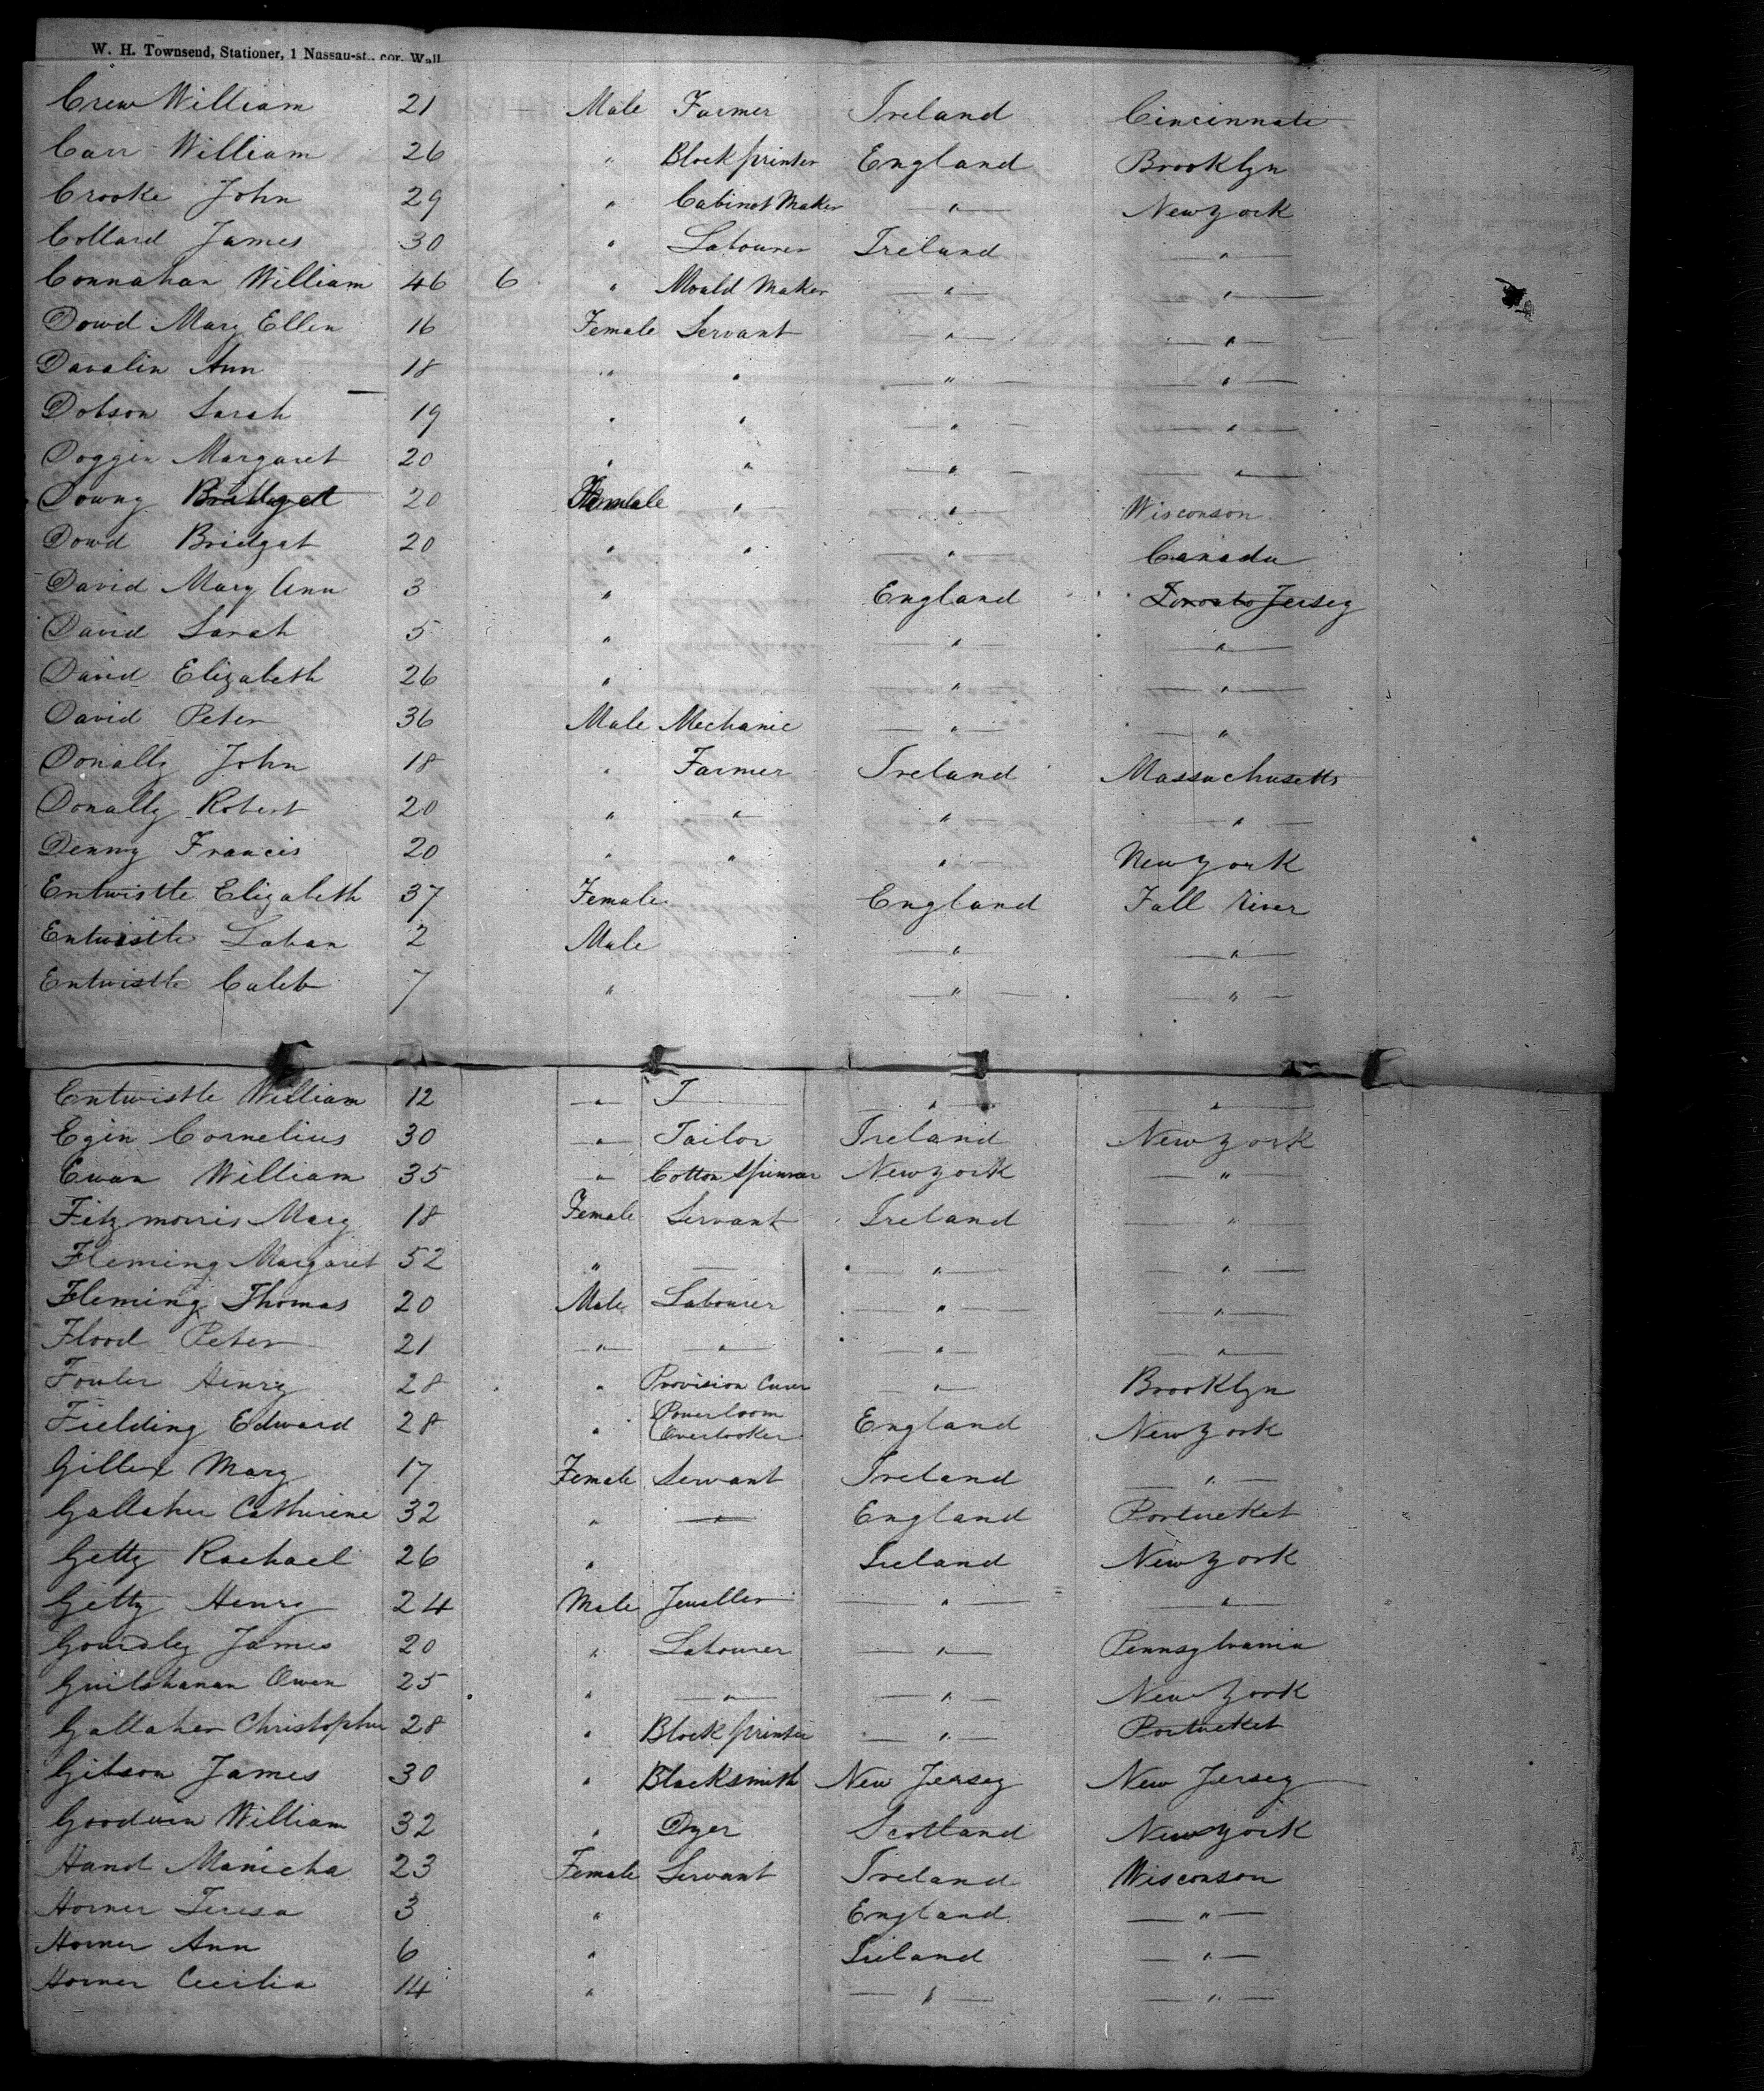 W. H. Townsend, Stationer, 1 Nassau-st., cor. Wall
Crew William 21 Male Farmer Ireland Cincinnate
Carr William 26 " Block printer England Brooklyn
Crooke John 29 " Cabinet Maker " New york
Collard James 30 " Labourer Ireland "
Connahan William 46 6 " Mould Maker " "
Dowd Mary Ellen 16 Female Servant " "
Davalin Ann 18 " " " "
Dobson Sarah 19 " " " "
Doggin Margaret 20 " " " "
Downy Bridget 20 Female " " Wisconson
Dowd Bridget 20 " " " Canada
David Mary Ann 3 " England Toronto Jersey
David Sarah 5 " " "
David Elizabeth 26 " " "
David Peter 36 Male Mechanic " "
Donally John 18 " Farmer Ireland Massachusetts
Donally Robert 20 " " " "
Denny Francis 20 " " " New york
Entwistle Elizabeth 37 Female England Fall River
Entwistle Laban 2 Male " "
Entwistle Caleb 7 " " "
Entwistle William 12 " " "
Egin Cornelius 30 " Tailor Ireland New york
Ewan William 35 " Cotton Spinner New york "
Fitzmorris Mary 18 Female Servant Ireland "
Fleming Margaret 52 " — " "
Fleming Thomas 20 Male Labourer " "
Flood Peter 21 " " " "
Fowler Henry 28 " Provision Curer " Brooklyn
Fielding Edward 28 " Powerloom Overlooker England New york
Mary 17 Female Servant Ireland "
Gallaher Catherine 32 " " England Portucket
Getty Rachael 26 " Ireland New york
Getty Henry 24 Male Jeweller " "
Gourdley James 20 " Labourer " Pennsylvania
Owen 25 " " " New York
Gallaher Christopher 28 " Block printer " Portucket
Gibson James 30 " Blacksmith New Jersey New Jersey
Goodwin William 32 " Dyer Scotland New york
Hand Manicha 23 Female Servant Ireland Wisconson
Horner Teresa 3 " England "
Horner Ann 6 " Ireland "
Horner Cecilia 14 " " "